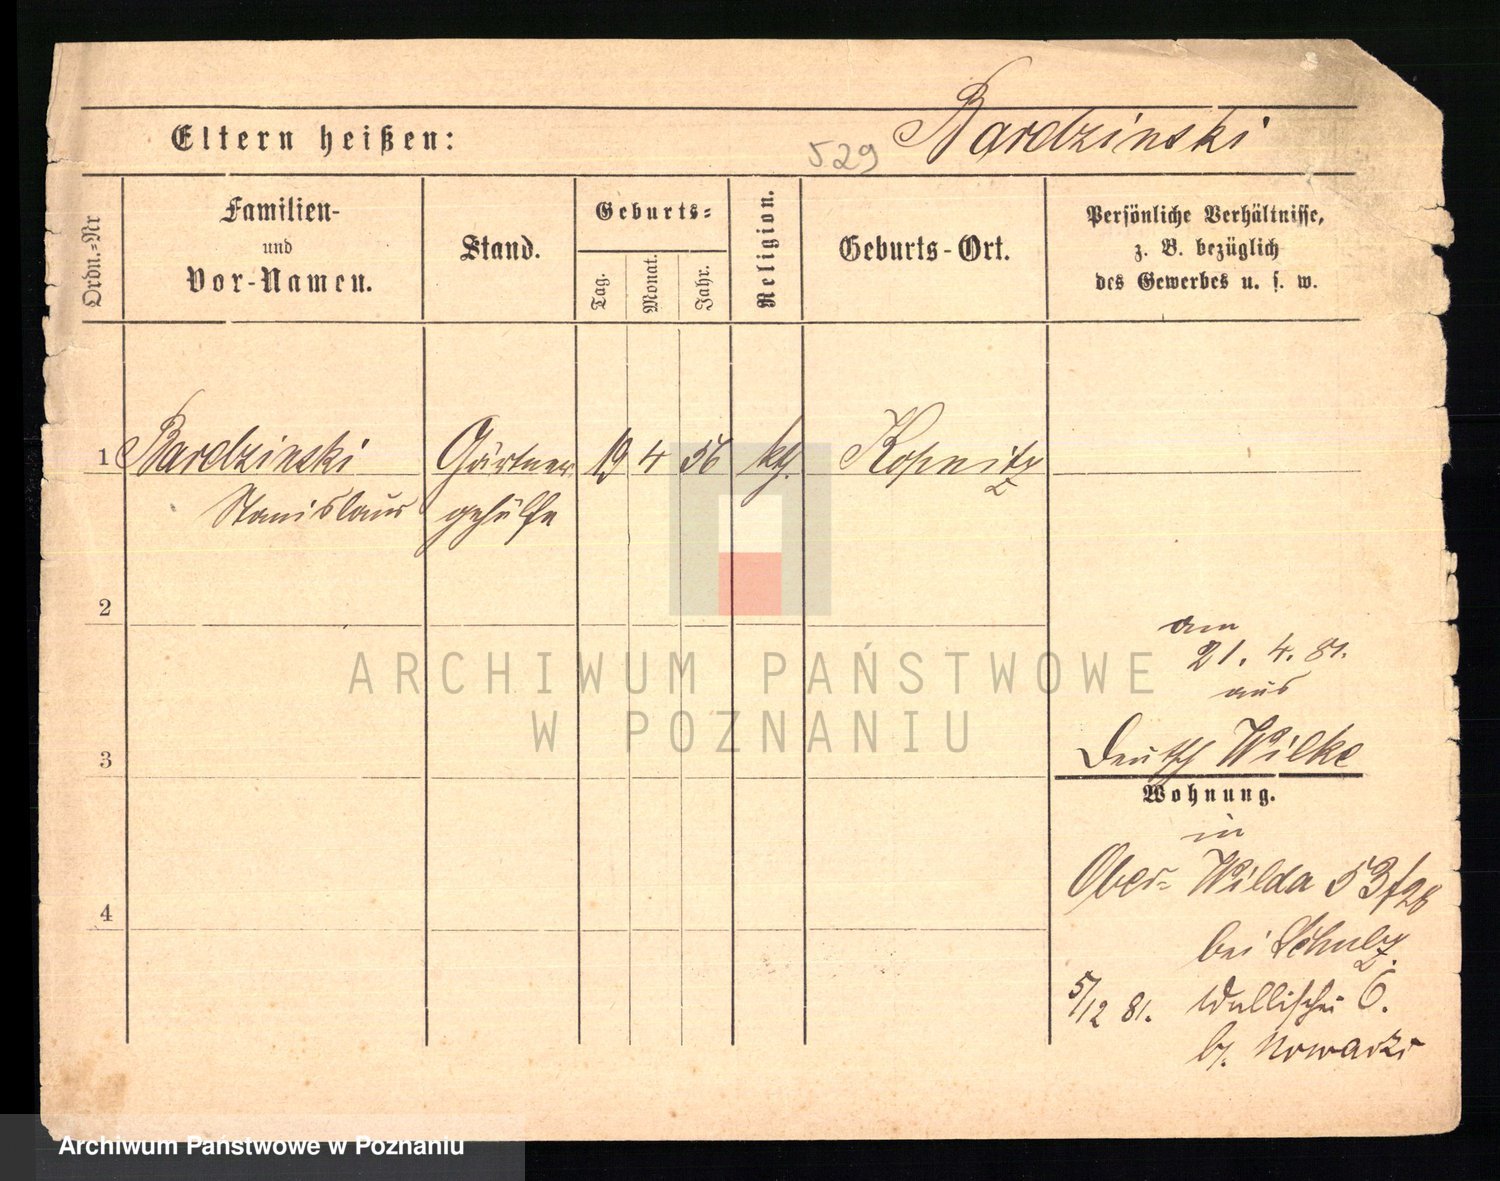 Bardzinski
Eltern heißen:
529
Ordn.-Nr
Familien-
und
Vor-Namen.
Stand.
Geburts-
Tag.
Monat.
Jahr.
Religion.
Geburts-Ort.
Persönliche Verhältnisse,
z. B. bezüglich
des Gewerbes u. s. w.
1 Bardzinski Gärtner 19 4 56 kth. Kopnitz
Stanislaus gehülfe
2
am
21. 4. 81.
aus
3 Deutsch Wilke
Wohnung.
in
Ober-Wilda 53/
4
bei Schulz.
5/12 81. Wallischei 6.
b.
ARCHIWUM PAŃSTWOWE
W POZNANIU
Archiwum Państwowe w Poznaniu